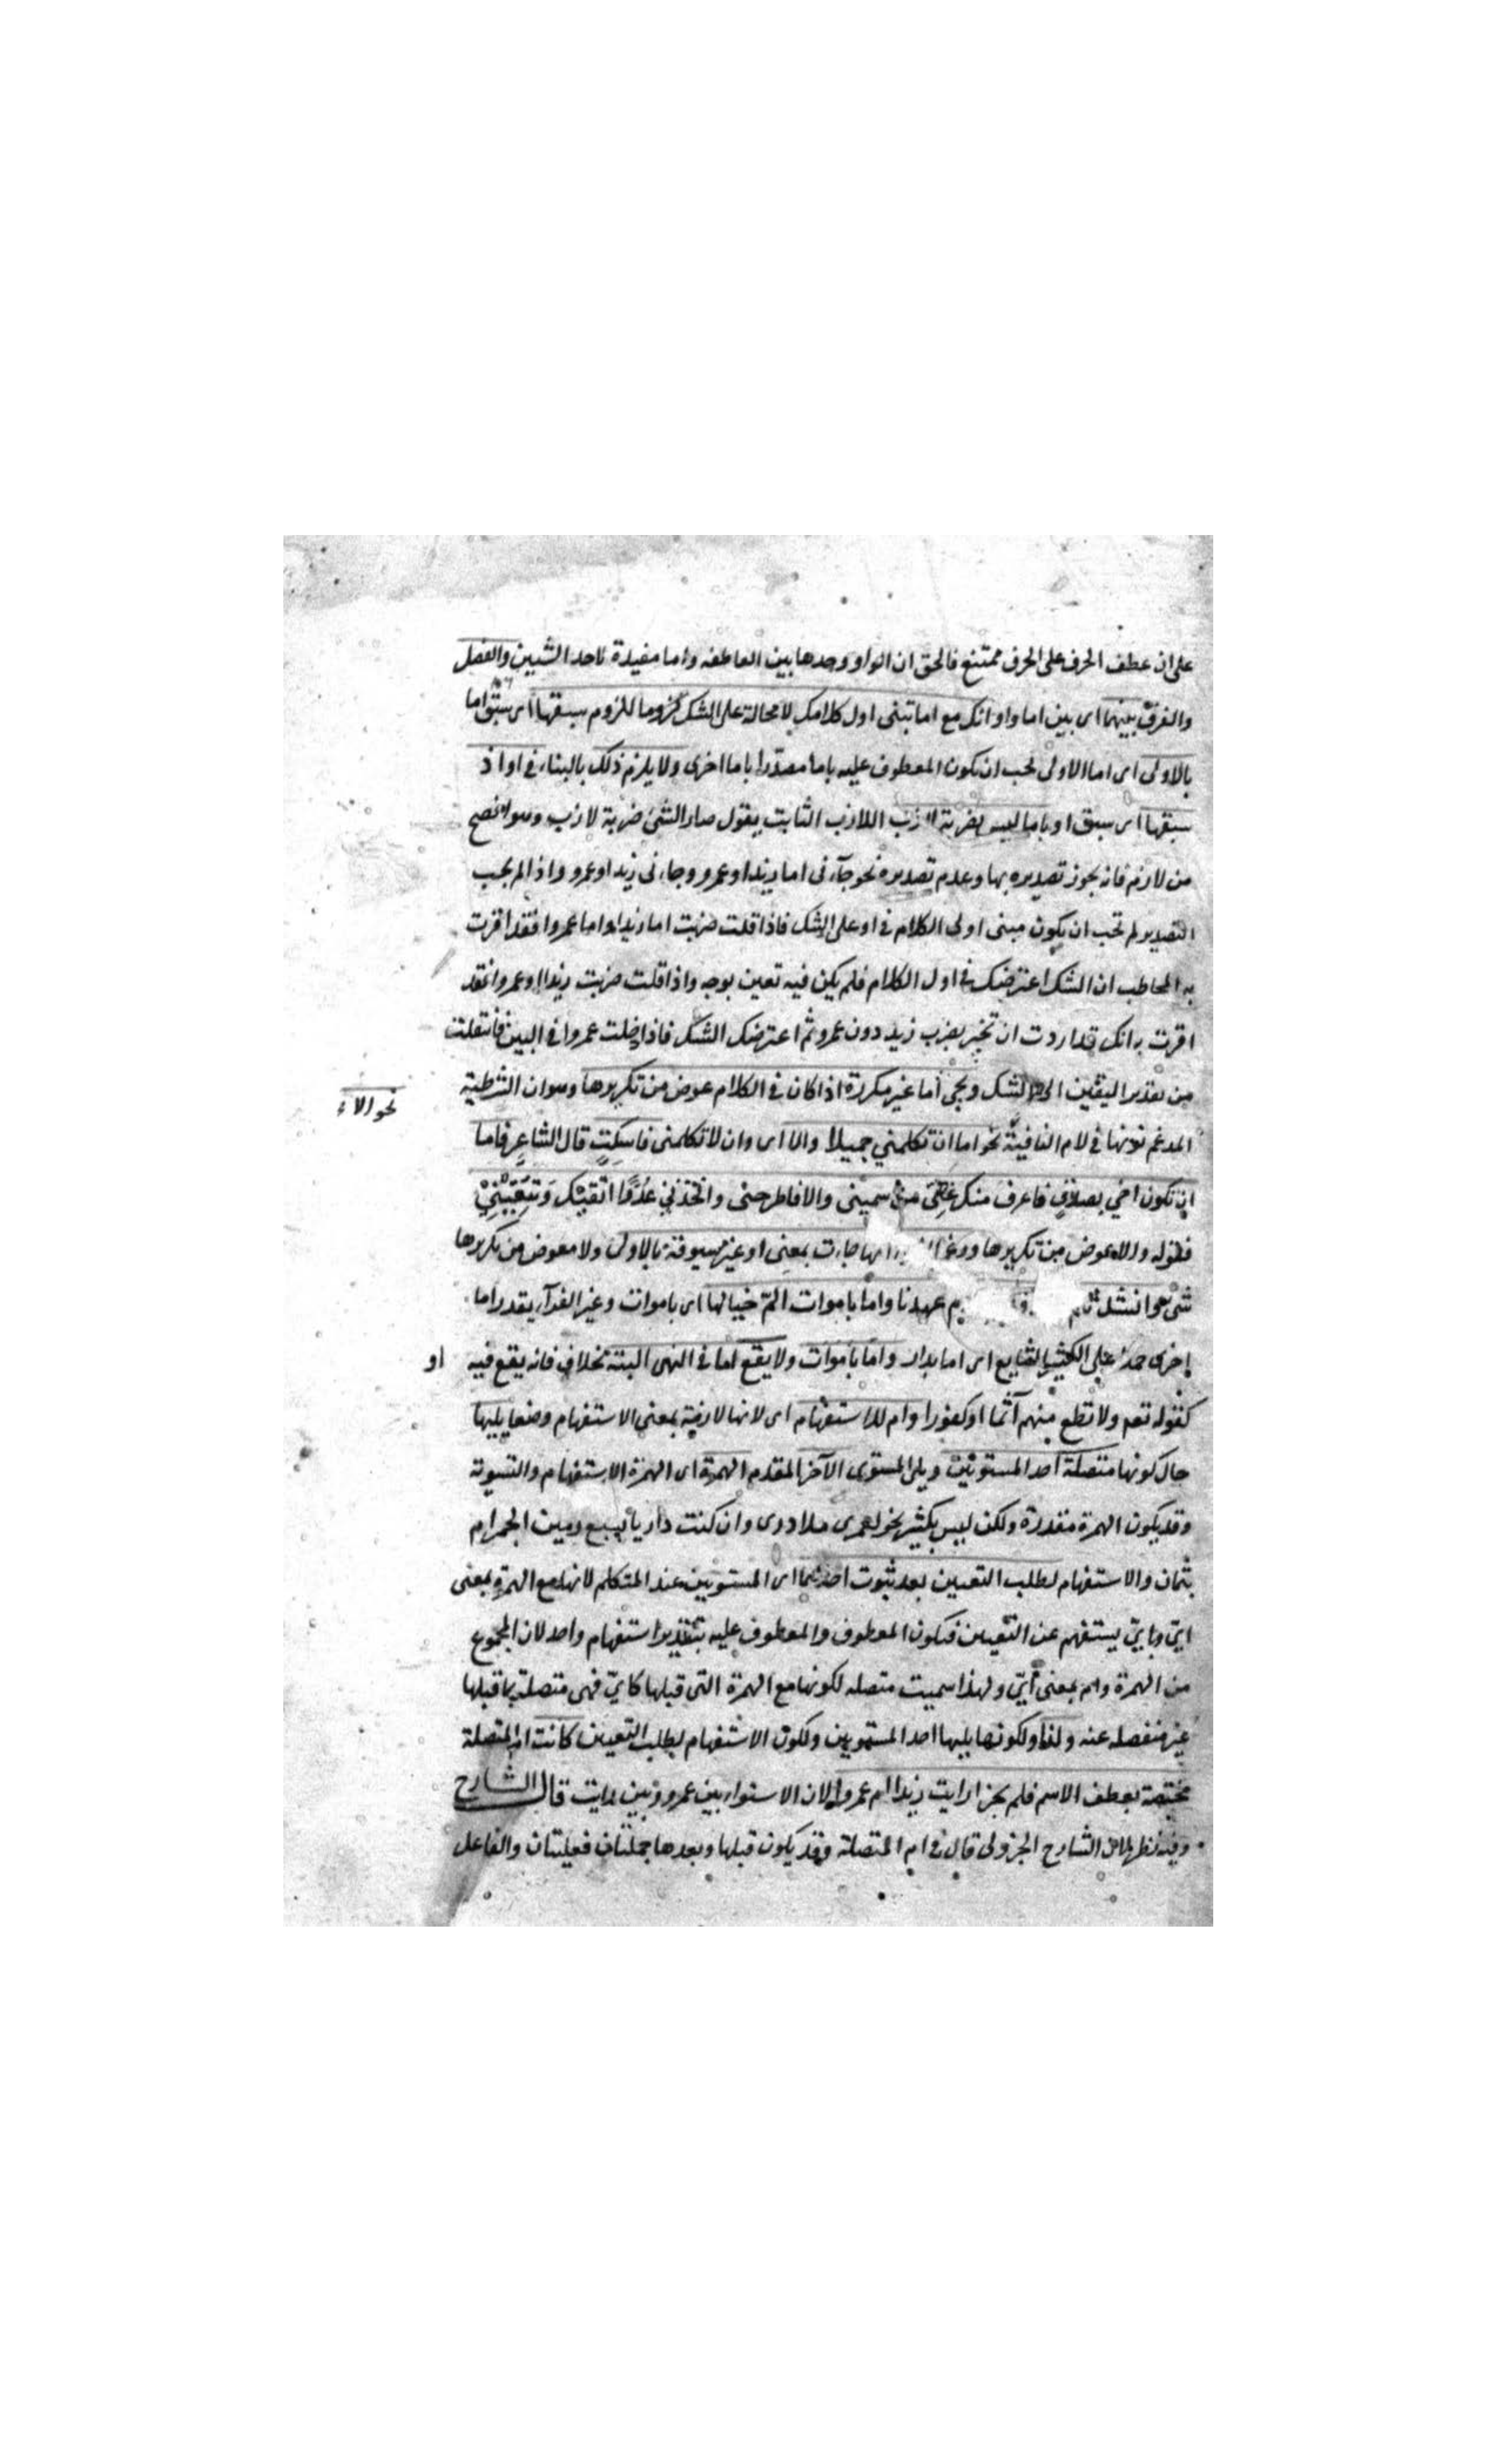 على ان عطف الحرف على الحرف ممتنع فالحق ان الواو وحدها بين العاطفه واما مفيدة لاحد الشيين والفصل
والفرق بينهما اى بين اما واو انك مع اما تبنى اول كلامك لا محالة على الشك لزوما للزوم سبقها اى سبق اما
بالاولى اى اما الاولى يجب ان يكون المعطوف عليه باما مصدرا باما اخرى ولا يلزم ذلك بالبناء فى او اذ
سبقها اى سبق او باما ليس بضربة لازب اللازب الثابت يقول صار الشئ ضربة لازب وهو افصح
من لازم فانه يجوز تصديره بها وعدم تصديره نحو جآءنى اما زيد او عمرو وجاءنى زيد او عمرو واذا لم يجب
التصدير لم يجب ان يكون مبنى اولى الكلام فى او على الشك فاذا قلت ضربت اما زيدا واما عمروا فقد اقررت
به المخاطب ان الشك اعترضك فى اول الكلام فلم يكن فيه تعين بوجه واذا قلت ضربت زيدا او عمروا فقد
اقررت به انك قد اردت ان تخبر بضرب زيد دون عمرو ثم اعترضك الشك فاذا دخلت عمروا فى البين فانتقلت
من تقدير اليقين الى الشك ويجى اما غير مكررة اذا كان فى الكلام عوض من تكريرها وهو ان الشرطية
نحو الا
المدغم نونها فى لام النافية نحو اما ان تكلمني جميلا والا اى وان لا تكلمنى فاسكت قال الشاعر فاما
ان تكون اخي بصدق فاعرف منك غثى من سمينى والا فاطرحنى واتخذني عدوا اتقيك وتتقيني
فقوله والا عوض من تكريرها جاءت بمعنى او غير مسبوقة بالاولى ولا معوض من تكريرها
شئ نحو انشد عهدنا واما باموات الم خيالها اى باموات وغير الفرآء يقدر اما
اخرى حملا على الكثير الشايع اى اما بدار واما باموات ولا يقع اما فى النهى البتة بخلاف فانه يقع فيه
او
كقوله تعم ولا تطع منهم آثما او كفورا وام للاستفهام اى لانها لازمة بمعنى الاستفهام وضعا يليها
حال كونها متصلة احد المستويين ويلى المستوى الآخر المقدم الهمزة اى الهمزة الاستفهام والتسوية
وقد يكون الهمزة مقدرة ولكن ليس بكثير نحو لعمرى ما ادرى وان كنت داريا بسبع رمين الجمر ام
بثمان والاستفهام لطلب التعيين بعد ثبوت احدهما اى المستويين عند المتكلم لانها مع الهمزة بمعنى
ايّ وبايّ يستفهم عن التعيين فيكون المعطوف والمعطوف عليه بتقدير استفهام واحد لان المجموع
من الهمزة وام بمعنى أيّ ولهذا سميت متصله لكونها مع الهمزة التى قبلها كايّ فهى متصلة بما قبلها
غير منفصله عنه ولذا ولكونها يليها احد المستويين ولكون الاستفهام لطلب التعيين كانت ام المتصلة
مختصة بعطف الاسم فلم يجز ارايت زيدا ام عمروا لان الاستواء بين عمرو وبين رايت قال الشارح
وفيه نظر لان الشارح الجزولى قال فى ام المتصلة وقد يكون قبلها وبعدها جملتان فعليتان والفاعل